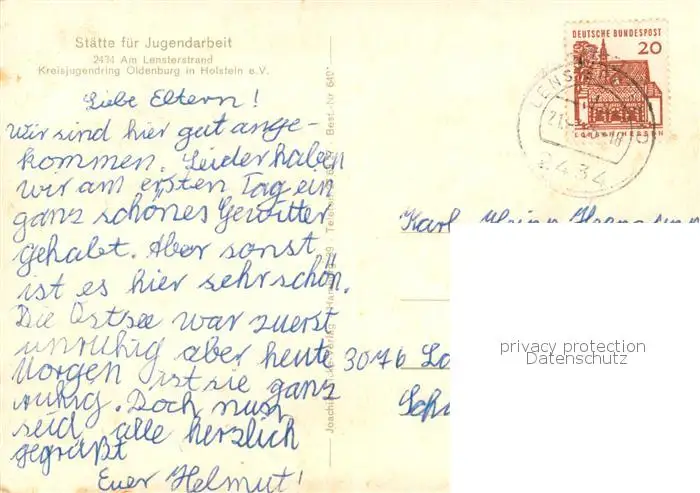 Stätte für Jugendarbeit
2434 Am Lensterstrand
Kreisjugendring Oldenburg in Holstein e.V.
Liebe Eltern!
Wir sind hier gut ange-
kommen. Leider haben
wir am ersten Tag ein
ganz schönes Gewitter
gehabt. Aber sonst
ist es hier sehr schön.
Die Ostsee war zuerst
unruhig aber heute
Morgen ist sie ganz
ruhig. Doch nun
seid alle herzlich
gegrüßt
Euer Helmut!
DEUTSCHE BUNDESPOST
20
LORSCH/HESSEN
2434
Karl
3076
privacy protection
Datenschutz